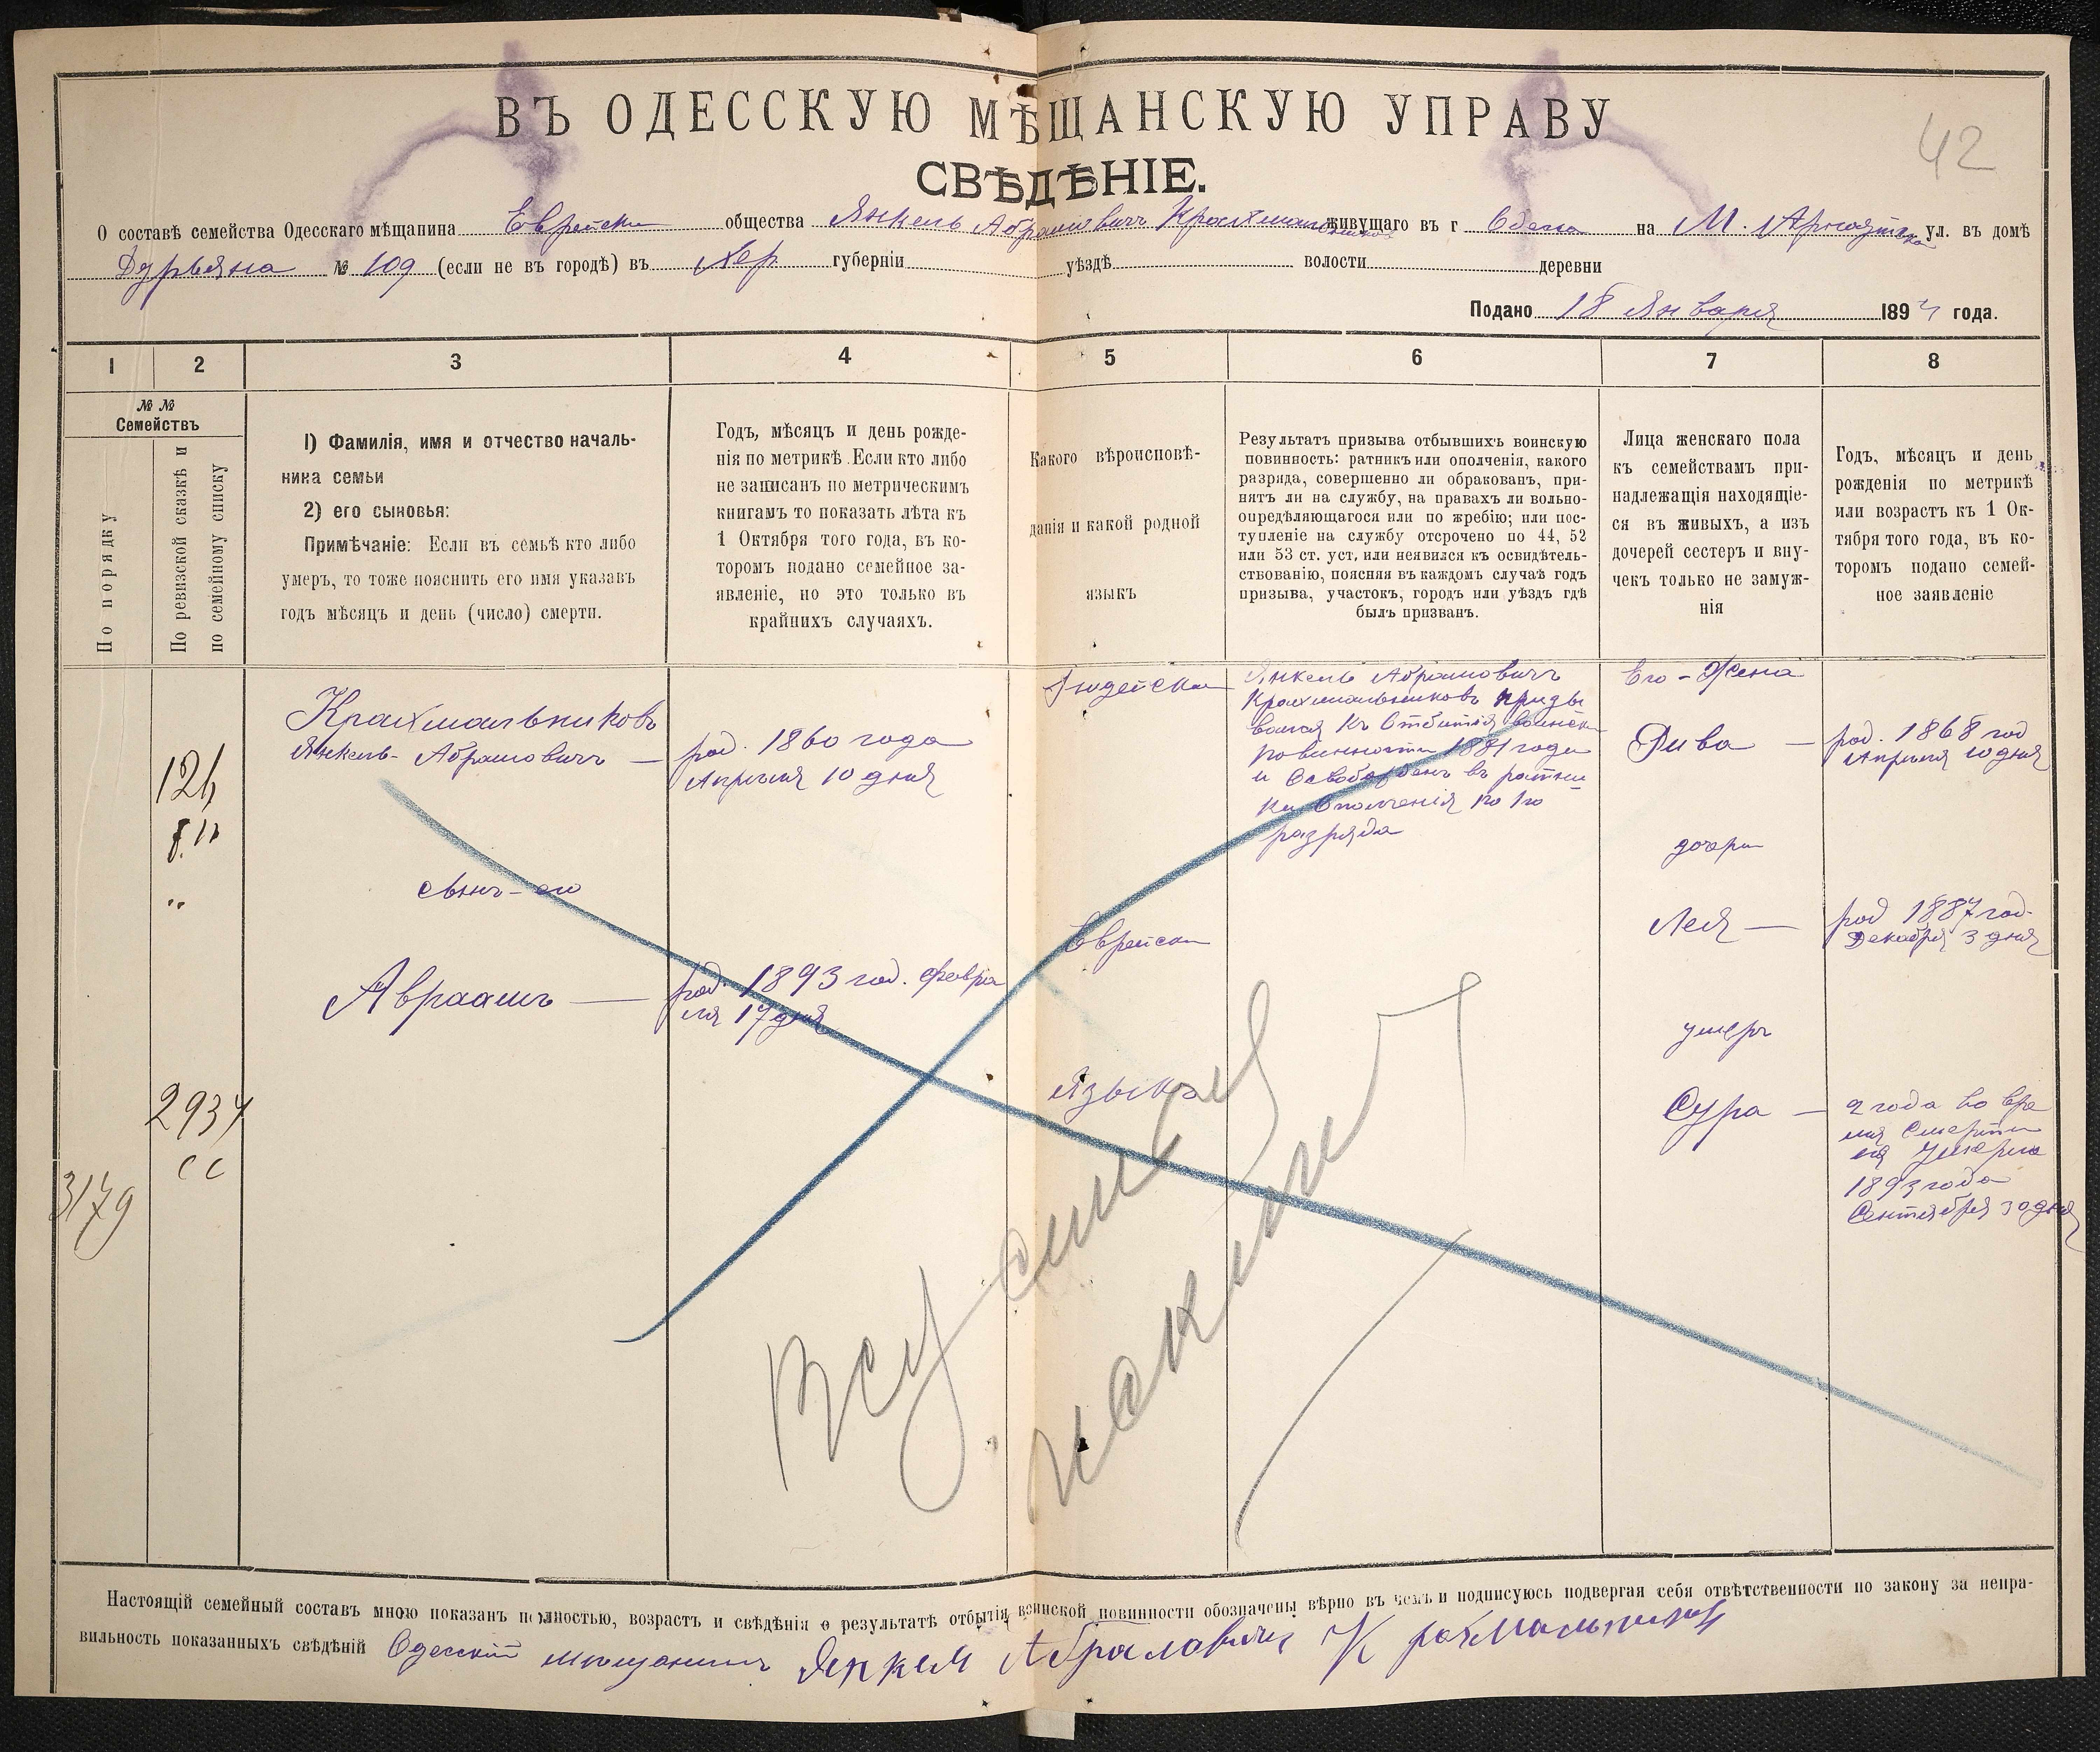 42
ВЪ ОДЕССКУЮ МѢЩАНСКУЮ УПРАВУ
СВѢДѢНІЕ.
О составѣ семейства Одесскаго мѣщанина Еврейски общества Янкель Абрамовичъ Крахмальников живущаго въ г Одесса на М. Арнаутска ул. въ домѣ
№ 109 (если не въ городѣ) въ Хер. губерніи уѣздѣ волости деревни
Подано 18 Января 1894 года.
1 2 3 4 5 6 7 8
№ №
Семействъ
По порядку
По ревизской сказкѣ и
по семейному списку
1) Фамилія, имя и отчество началь-
ника семьи
2) его сыновья:
Примѣчаніе: Если въ семьѣ кто либо
умеръ, то тоже пояснить его имя указавъ
годъ мѣсяцъ и день (число) смерти.
Годъ, мѣсяцъ и день рожде-
нія по метрикѣ. Если кто либо
не записанъ по метрическимъ
книгамъ то показать лѣта къ
1 Октября того года, въ ко-
торомъ подано семейное за-
явленіе, но это только въ
крайнихъ случаяхъ.
Какого вѣроисповѣ-
данія и какой родной
языкъ
Результатъ призыва отбывшихъ воинскую
повинность: ратникъ или ополченія, какого
разряда, совершенно ли обракованъ, при-
нятъ ли на службу, на правахъ ли вольно-
опредѣляющагося или по жребію; или пос-
тупленіе на службу отсрочено по 44, 52
или 53 ст. уст, или неявился къ освидѣтель-
ствованію, поясняя въ каждомъ случаѣ годъ
призыва, участокъ, городъ или уѣздъ гдѣ
былъ призванъ.
Лица женскаго пола
къ семействамъ при-
надлежащія находящіе-
ся въ живыхъ, а изъ
дочерей сестеръ и вну-
чекъ только не замуж-
нія
Годъ, мѣсяцъ и день
рожденія по метрикѣ
или возрастъ къ 1 Ок-
тября того года, въ ко-
торомъ подано семей-
ное заявленіе
Крахмальниковъ
Янкель-Абрамовичъ —
род. 1860 года
Апреля 10 дня
Іюдейска
Еврейски
Языкъ
Янкель Абрамовичъ
Крахмальниковъ призы
вался къ Отбитія воинск
повинности 1881 года
и Освобожденъ въ ратни
ки Ополченія по 1го
разряда
Его-Жена
Рива —
род. 1868 год
Апреля 10 дня
дочери
Лея —
род 1887 год.
Декабря 3 дня
умеръ
Сура —
2 года во вре
мя Смерти
ея Умерла
1893 года
Сентября 30 дня
сынъ-его
Авраамъ —
род. 1893 год. Февра
ля 17 дня
2934
СС
3179
Настоящій семейный составъ мною показанъ полностью, возрастъ и свѣдѣнія о результатѣ отбытія воинской повинности обозначены вѣрно въ чемъ и подписуюсь подвергая себя отвѣтственности по закону за непра-
вильность показанныхъ свѣдѣній Одесскій мещанинъ Янкель Абрамовичъ Крахмальников